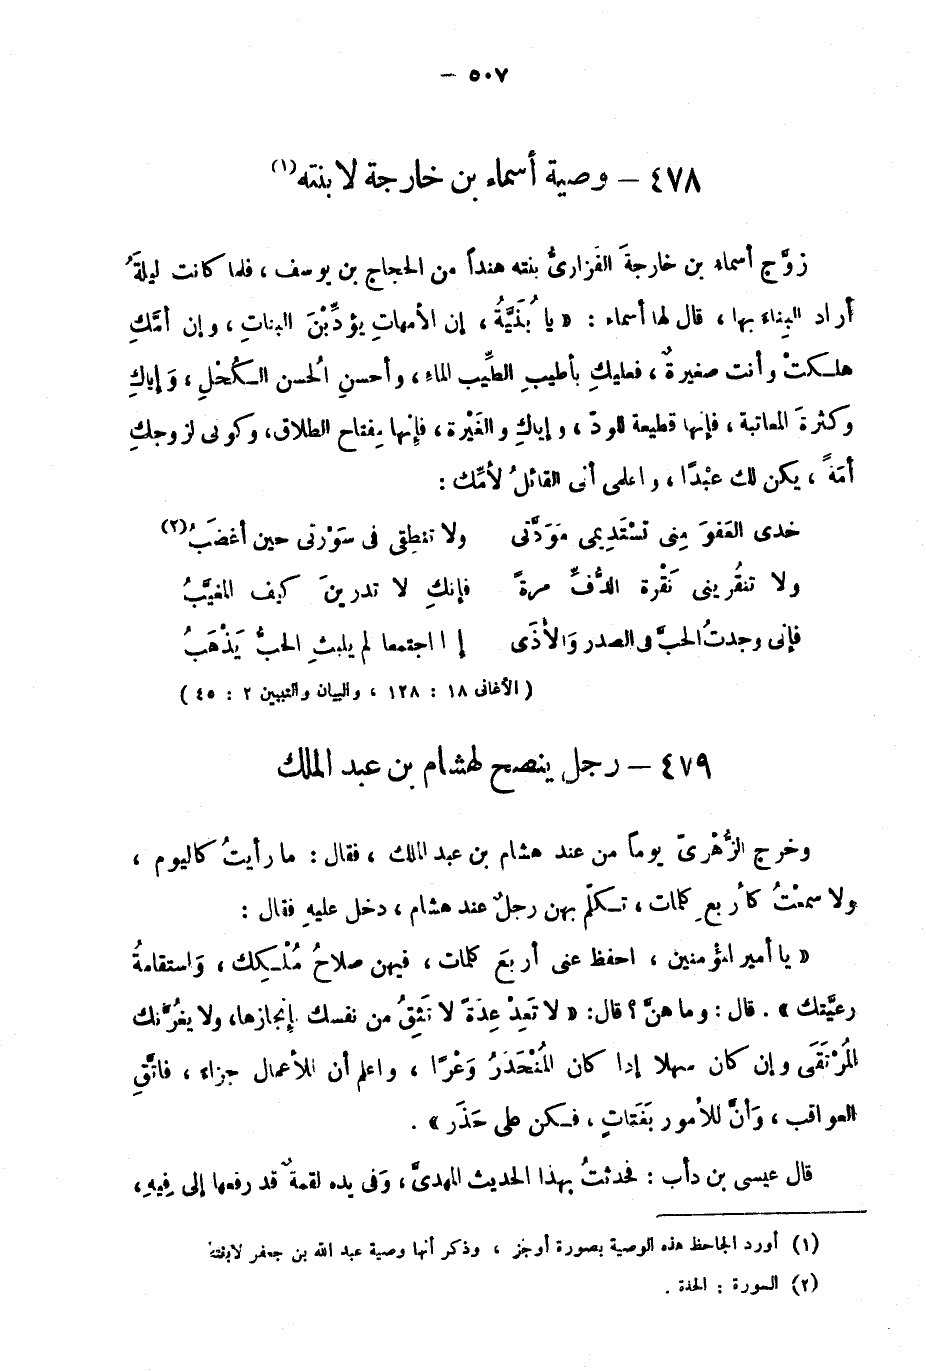 — ٥٠٧
٤٧٨ – وصية أسماء بن خارجة لابنته (١)
زوَّج أسماء بن خارجةَ الفَزارىُّ بنته هنداً من الحجاج بن يوسف ، فلما كانت ليلةَُ
أراد البِناء بها ، قال لها أسماء : « يا بُنَيَّةُ ، إن الأمهاتِ يؤدِّبْنَ البناتِ ، وإن أمَّكِ
هلكتْ وأنت صغيرةٌ ، فعليكِ بأطيبِ الطِّيب الماءِ ، وأحسنِ الحُسن الكُحْلِ ، وَإياكِ
وكثرةَ المعاتبة ، فإنها قطيعة للودّ ، وإياكِ والغَيْرة ، فإنها مِفتاح الطلاق، وكونى لزوجكِ
أمَةً ، يكن لك عبْدًا ، واعلمى أنى القائلُ لأمِّك :
خذى العَفوَ مِنى تَسْتَدِيمى مَوَدَّتى ولا تنطِقى فى سَوْرتى حين أغضَبُ (٢)
ولا تنقُرينى نَقْرة الدُّفِّ مرةً فإنكِ لا تدرينَ كيف المغيَّبُ
فإنى وجدتُ الحبَّ فى الصدر وَالأذَى إذا اجتمعا لم يلبثِ الحبُّ يَذْهَبُ
( الأغانى ١٨ : ١٢٨ ، والبيان والتبيين ٢ : ٤٥ )
٤٧٩ – رجل ينصح لهشام بن عبد الملك
وخرج الزُّهْرىّ يوماً من عند هشام بن عبد الملك ، فقال : ما رأيتُ كاليوم ،
ولا سمعْتُ كأربعِ كلمات ، تكلّم بهن رجلٌ عند هشام ، دخل عليهِ فقال :
« يا أمير المؤمنين ، احفظ عنى أربعَ كلمات ، فيهن صلاحُ مُلْكِك ، وَاستقامةُ
رعيَّتك » . قال : وما هنَّ ؟ قال: « لا تَعِدْ عِدَةً لا تَثِقُ من نفسك بإنجازها، ولا يغُرَّنك
المُرْتَقَى وإن كان سهلا إذا كان المُنْحَدَرُ وَعْرًا ، واعلم أن للأعمال جزاء ، فاتَّقِ
العواقب ، وَأنَّ للأمور بَغَتاتٍ ، فكن على حَذَر » .
قال عيسى بن دأب : فحدثتُ بهذا الحديث المهدىَّ ، وَفى يده لقمةٌ قد رفعها إلى فِيهِ ،
(١) أورد الجاحظ هذه الوصية بصورة أوجز ، وذكر أنها وصية عبد الله بن جعفر لابنته
(٢) السورة : الحدة .